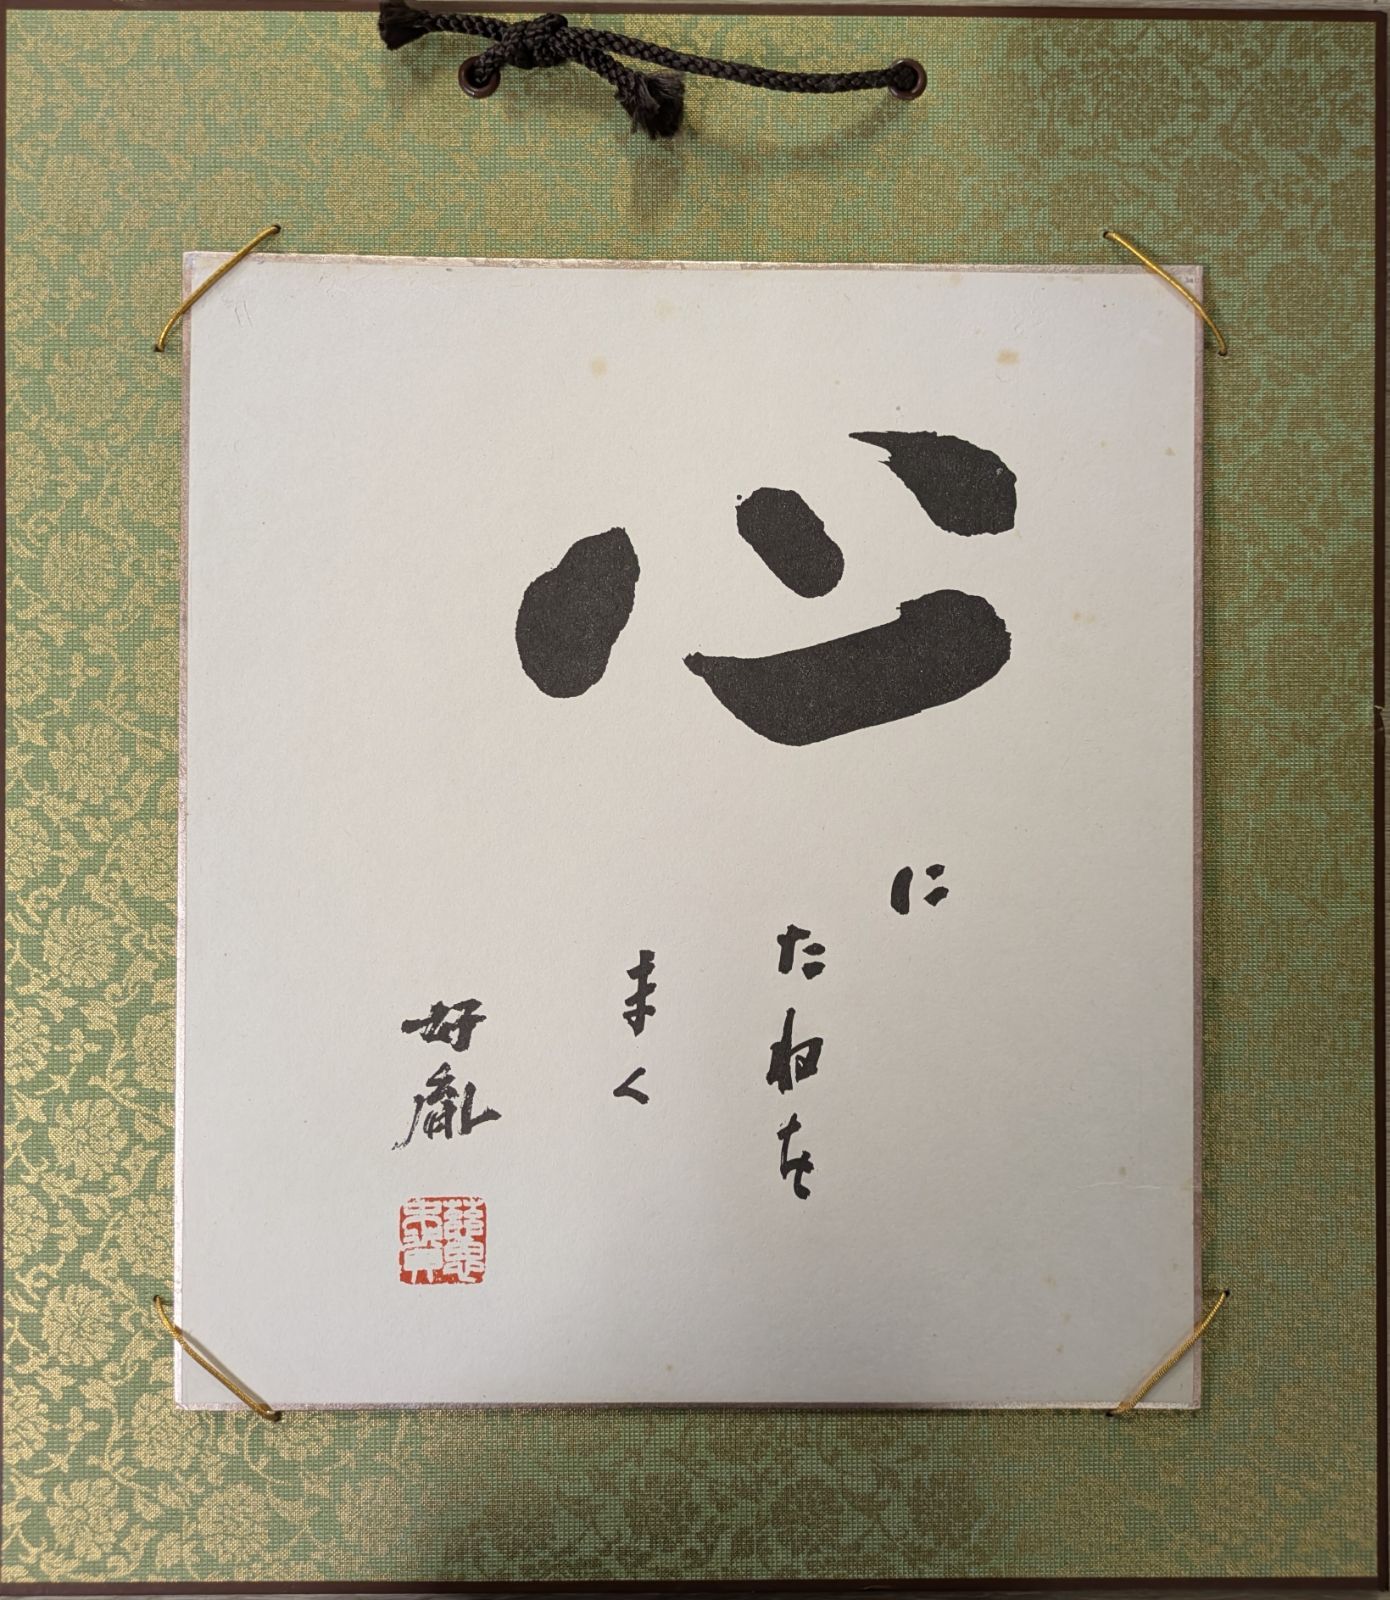 心
に
たねを
まく
好胤